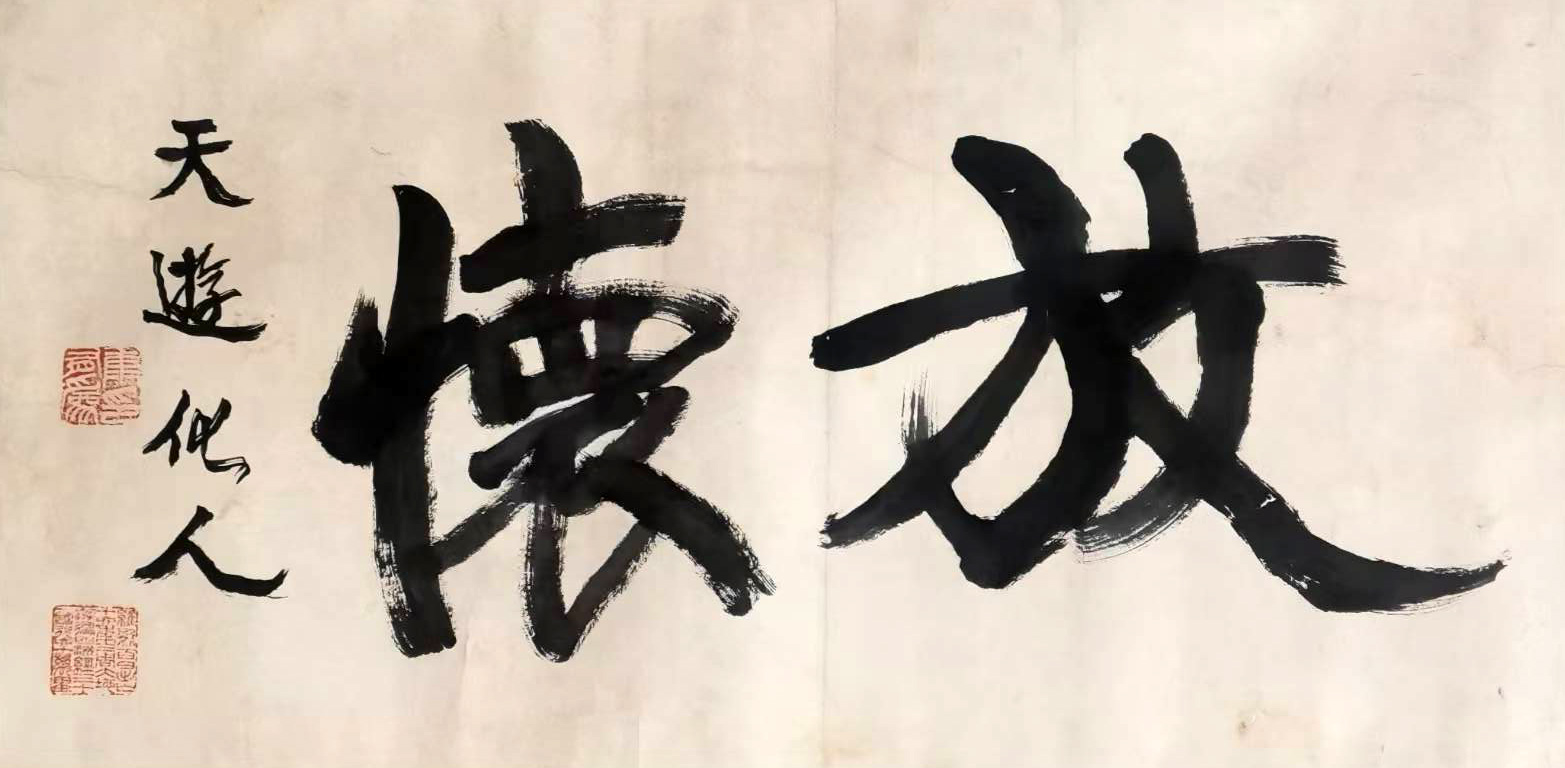 放懷
天遊化人